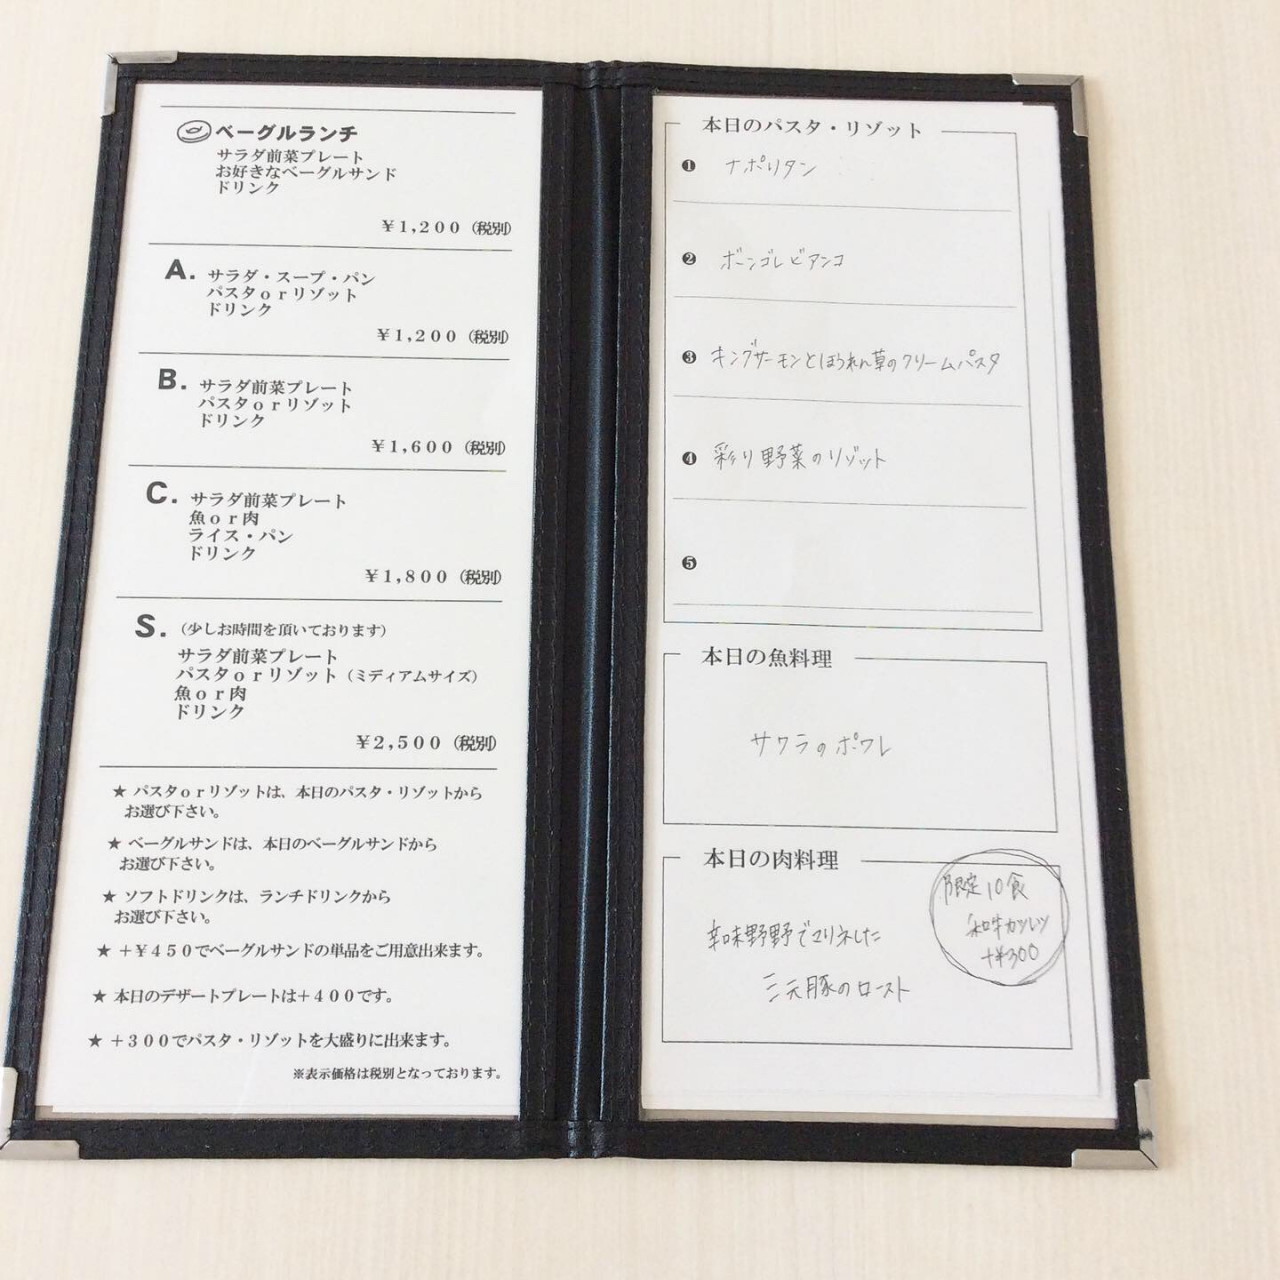 ベーグルランチ
サラダ前菜プレート
お好きなベーグルサンド
ドリンク
￥1,200（税別）
A. サラダ・スープ・パン
パスタorリゾット
ドリンク
￥1,200（税別）
B. サラダ前菜プレート
パスタorリゾット
ドリンク
￥1,600（税別）
C. サラダ前菜プレート
魚or肉
ライス・パン
ドリンク
￥1,800（税別）
S.（少しお時間を頂いております）
サラダ前菜プレート
パスタorリゾット（ミディアムサイズ）
魚or肉
ドリンク
￥2,500（税別）
★ パスタorリゾットは、本日のパスタ・リゾットから
お選び下さい。
★ ベーグルサンドは、本日のベーグルサンドから
お選び下さい。
★ ソフトドリンクは、ランチドリンクから
お選び下さい。
★ ＋￥450でベーグルサンドの単品をご用意出来ます。
★ 本日のデザートプレートは＋400です。
★ ＋300でパスタ・リゾットを大盛りに出来ます。
※表示価格は税別となっております。
本日のパスタ・リゾット
❶ ナポリタン
❷ ボーンゴレビアンコ
❸ キングサーモンとほうれん草のクリームパスタ
❹ 彩り野菜のリゾット
❺
本日の魚料理
サワラのポワレ
本日の肉料理
限定10食
和牛カツレツ
+¥300
辛味野野でマリネした
三元豚のロースト